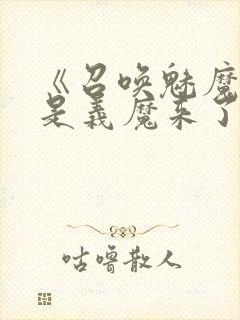 《召唤魅魔
是義魔来了
咕噜散人